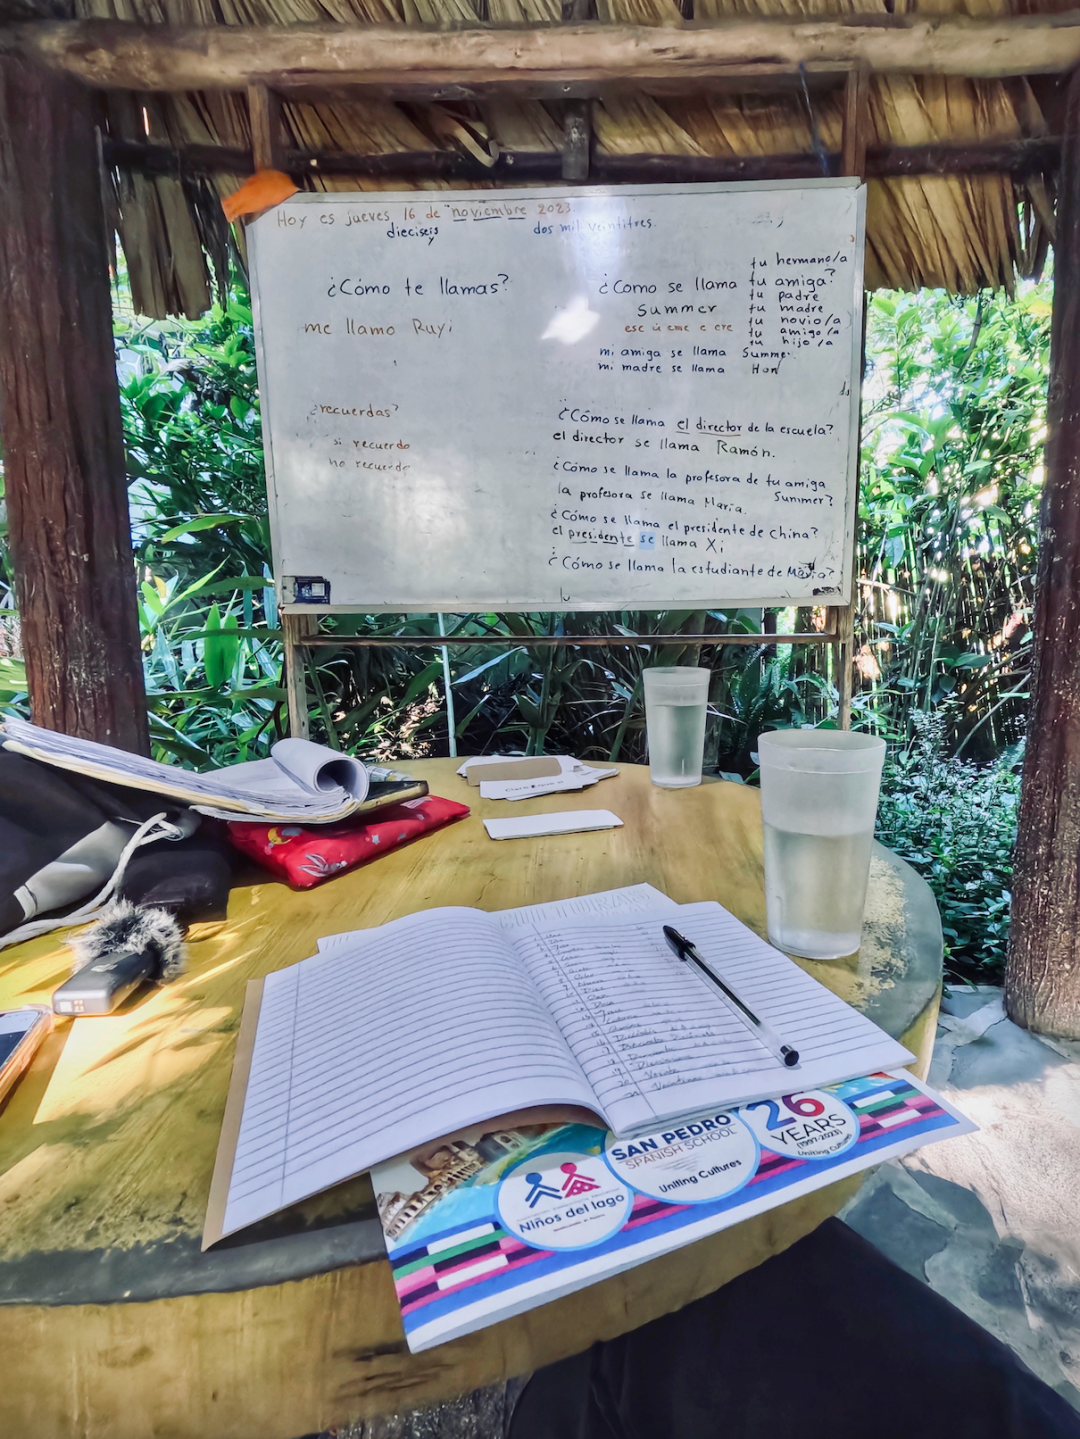 Hoy es jueves 16 de noviembre 2023.
dieciseis
dos mil veintitres.
¿Cómo te llamas?
me llamo Ruyi
¿recuerdas?
si recuerdo
no recuerdo
tu hermano/a
¿Cómo se llama tu amiga?
tu padre
Summer
tu madre
tu novio/a
ese ú eme e ere
tu amigo/a
tu hijo/a
mi amiga se llama Summer.
mi madre se llama Hon
¿Cómo se llama el director de la escuela?
el director se llama Ramón.
¿Cómo se llama la profesora de tu amiga
Summer?
la profesora se llama María.
¿Cómo se llama el presidente de China?
el presidente se llama Xi
¿Cómo se llama la estudiante de María?
SAN PEDRO
SPANISH SCHOOL
Uniting Cultures
26
YEARS
(1997-2023)
Uniting Cultures
Niños del lago